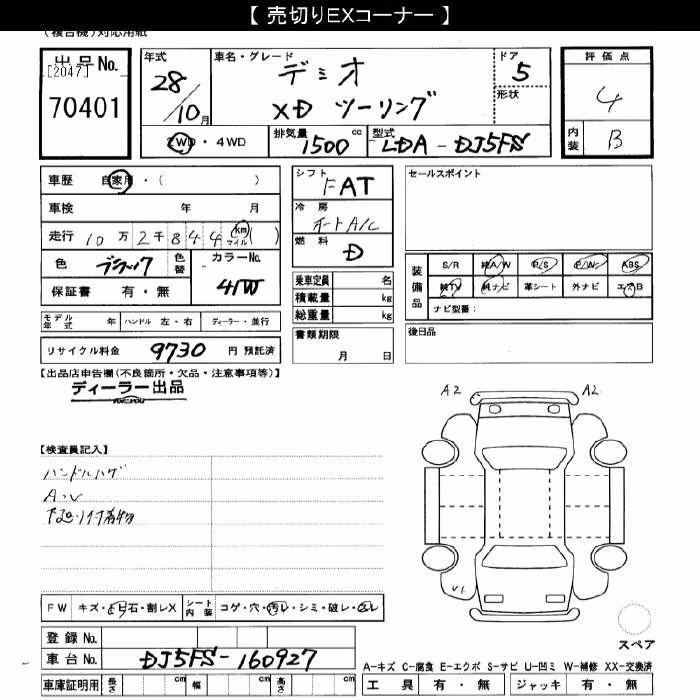 【 売切りEXコーナー 】
(複合機)対応用紙
出品No.
[2047]
70401
年式
28/10月
車名・グレード
デミオ
XD ツーリング
ドア
5
形状
評価点
4
内装
B
2WD・4WD
排気量
1500cc
型式
LDA-DJ5FS
車歴 自家用・( )
車検 年 月
走行 10万2千844 km マイル ( )
色 ブラック 色替
カラーNo.
41W
保証書 有・無
モデル年式 年 ハンドル 左・右 ディーラー・並行
リサイクル料金 9730 円 預託済
シフト
FAT
冷房
オートA/C
燃料
D
乗車定員 名
積載量 kg
総重量 kg
書類期限
月 日
セールスポイント
装備品
S/R 純A/W P/S P/W ABS
純TV 純ナビ 革シート 外ナビ エアB
ナビ型番:
後日品
【出品店申告欄(不良箇所・欠品・注意事項等)】
ディーラー出品
【検査員記入】
ハンドルハゲ
A・U
下廻り付着物
A2
A2
FW キズ・とび石・割レX
シート内装 コゲ・穴・汚レ・シミ・破レ・スレ
登録No.
車台No. DJ5FS-160927
車庫証明用 長さ cm 幅 cm 高さ cm
スペア
A-キズ C-腐食 E-エクボ S-サビ U-凹ミ W-補修 XX-交換済
工具 有・無 ジャッキ 有・無